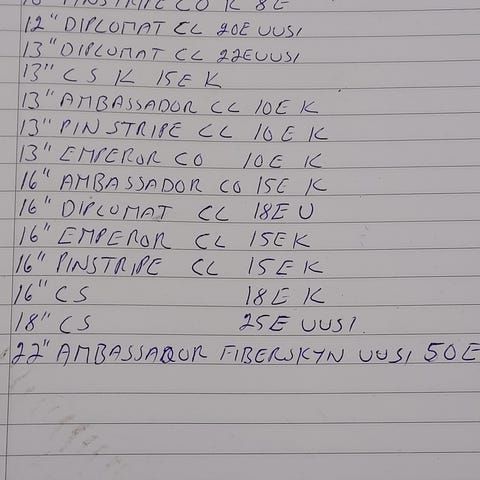 PINSTRIPE CO K 8E
12" DIPLOMAT CL 20E UUSI
13" DIPLOMAT CL 22E UUSI
13" CS K 15E K
13" AMBASSADOR CL 10E K
13" PINSTRIPE CL 10E K
13" EMPEROR CO 10E K
16" AMBASSADOR CO 15E K
16" DIPLOMAT CL 18E U
16" EMPEROR CL 15E K
16" PINSTRIPE CL 15E K
16" CS 18E K
18" CS 25E UUSI.
22" AMBASSADOR FIBERSKYN UUSI 50E